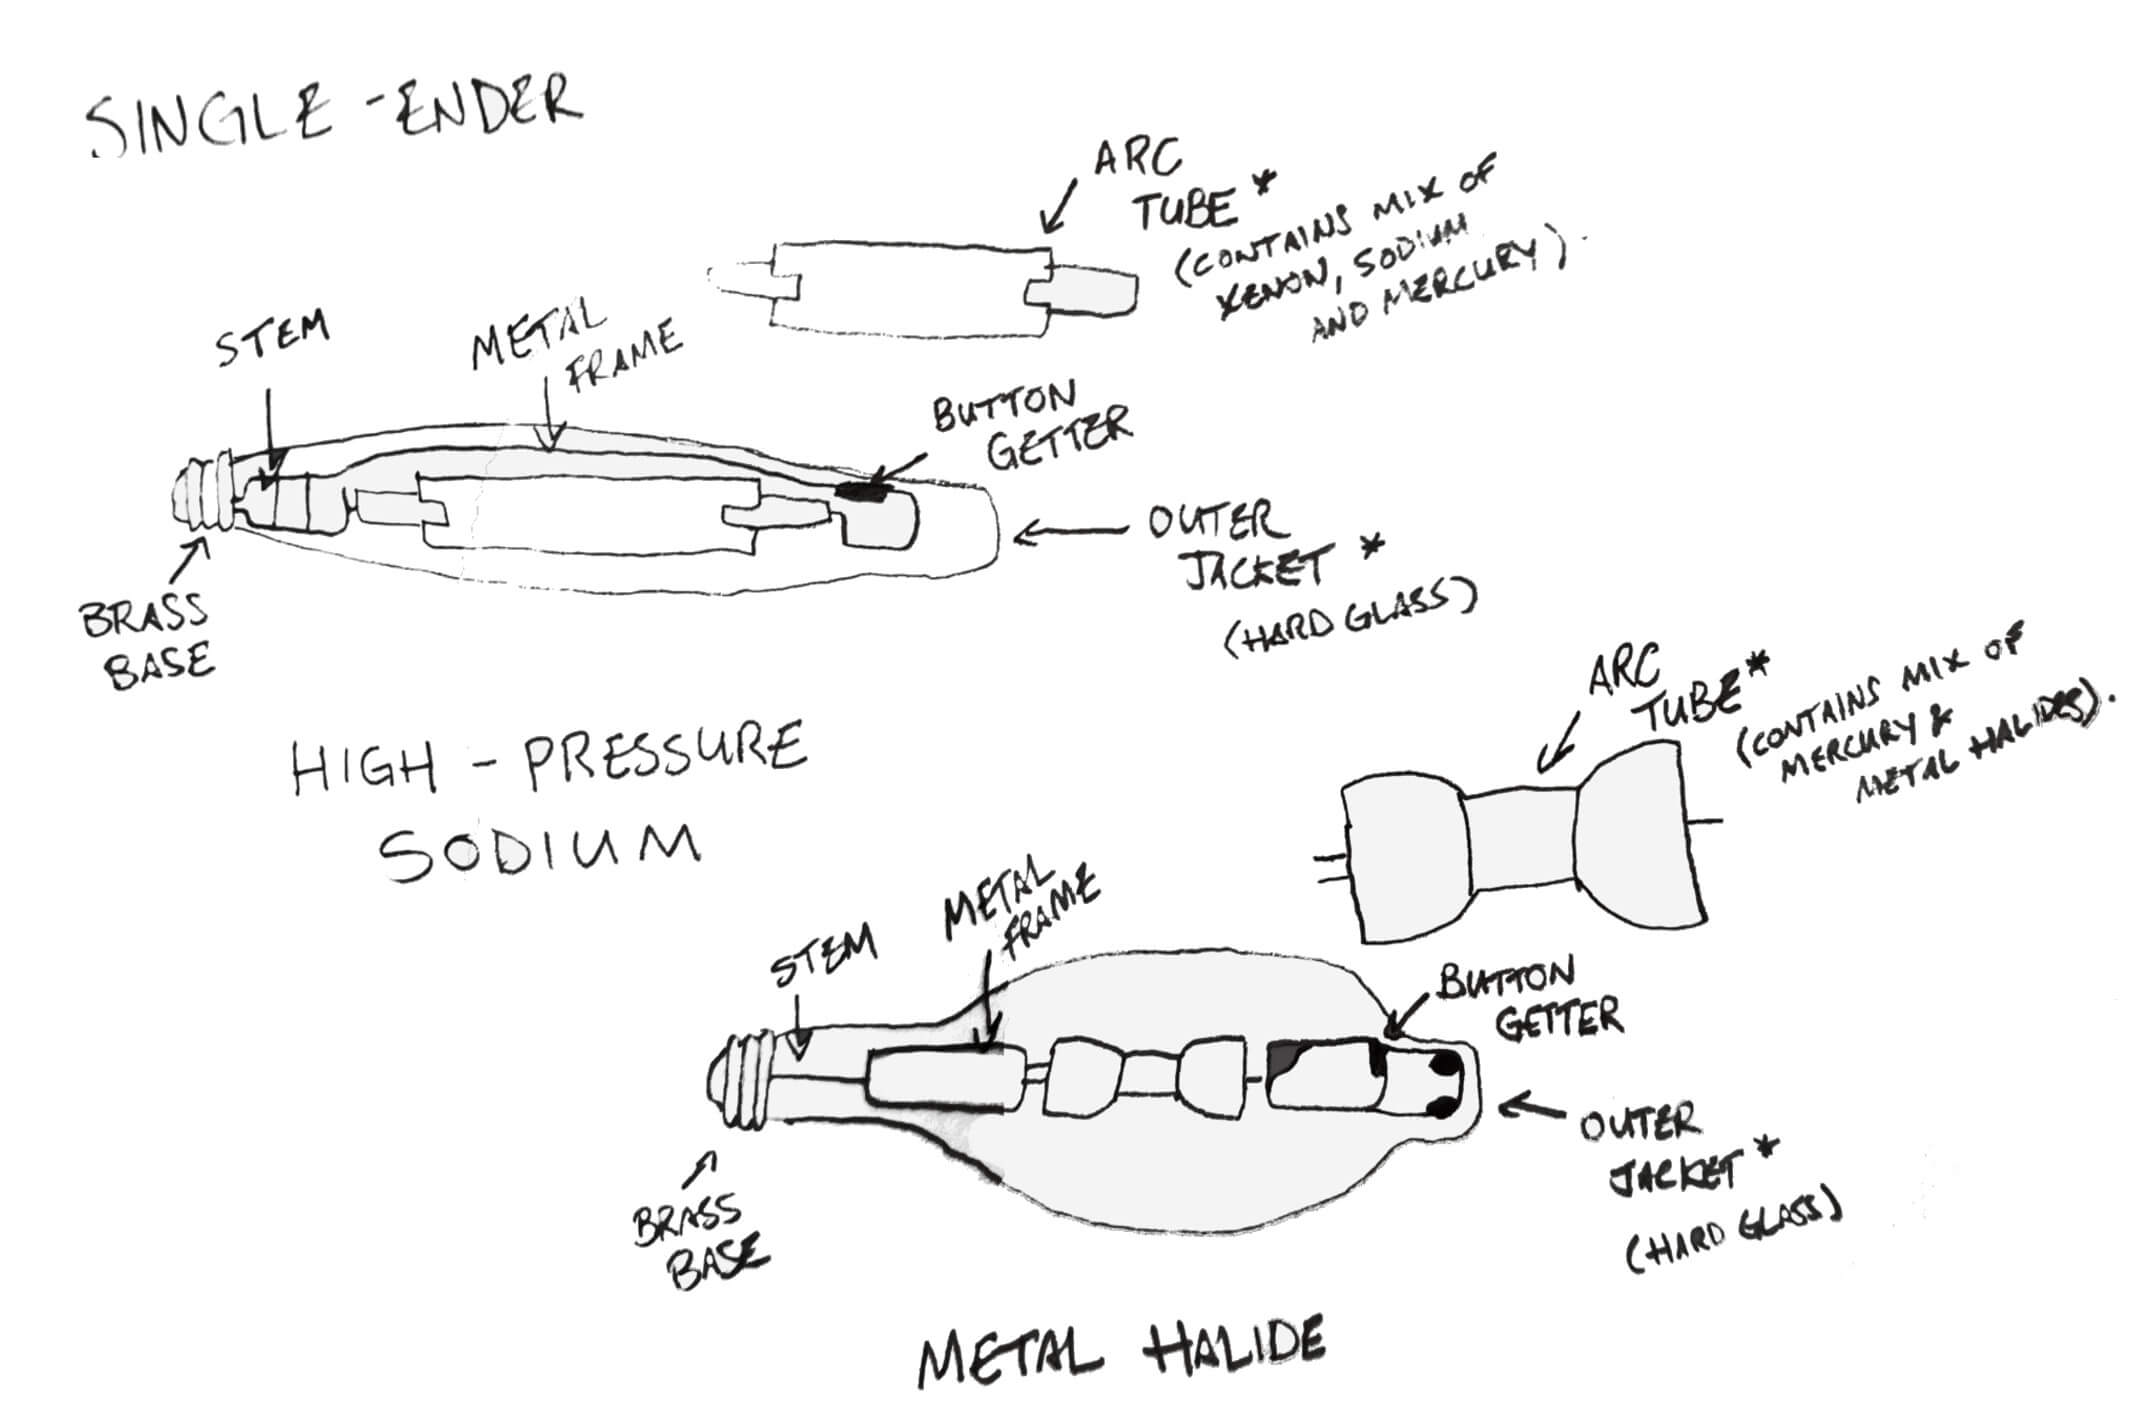 SINGLE-ENDER
ARC
TUBE*
(CONTAINS MIX OF
XENON, SODIUM
AND MERCURY).
STEM
METAL
FRAME
BUTTON
GETTER
OUTER
JACKET *
(HARD GLASS)
BRASS
BASE
HIGH-PRESSURE
SODIUM
ARC
TUBE*
(CONTAINS MIX OF
MERCURY &
METAL HALIDES).
STEM
METAL
FRAME
BUTTON
GETTER
OUTER
JACKET*
(HARD GLASS)
BRASS
BASE
METAL HALIDE